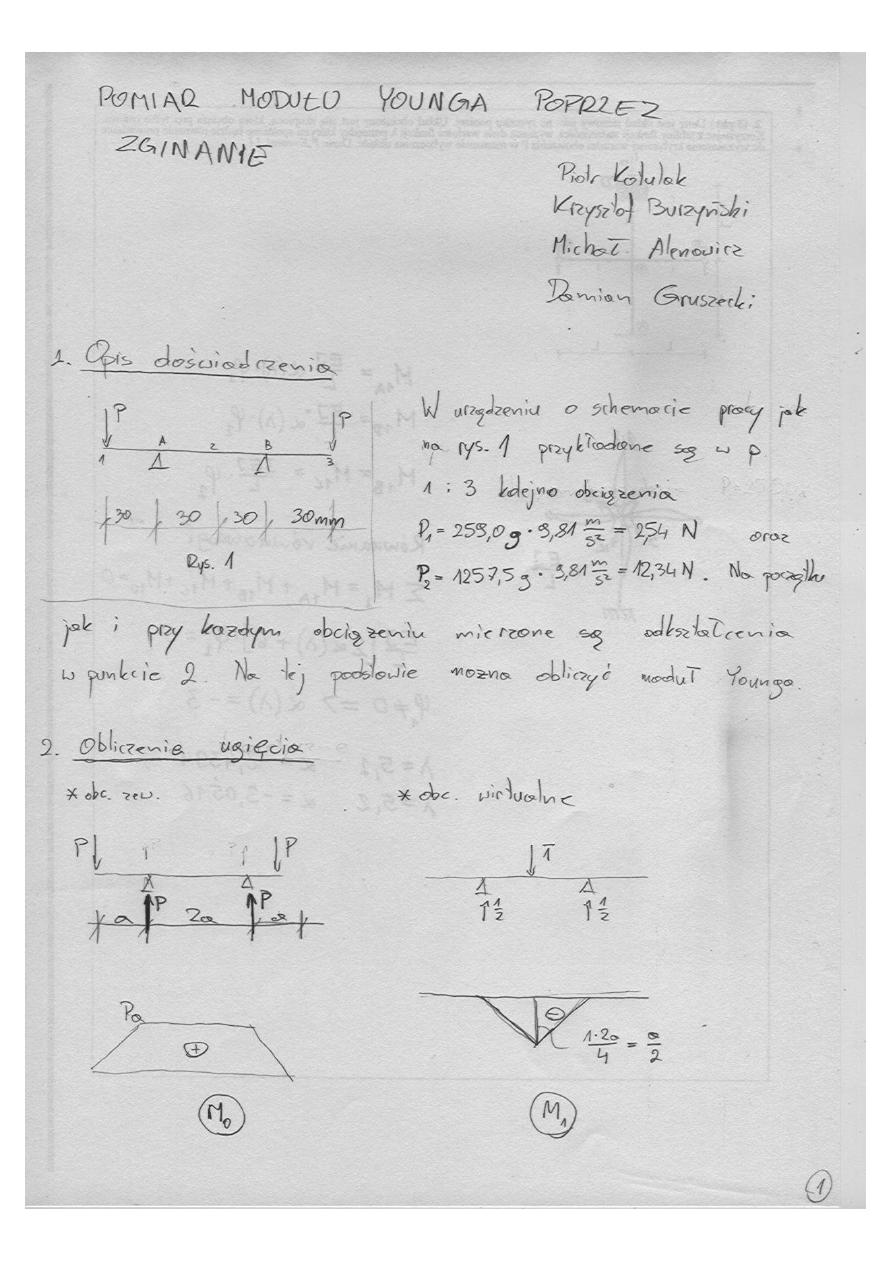 POMIAR MODUŁU YOUNGA POPRZEZ
ZGINANIE
Piotr Kotulak
Krzysztof Burzyński
Michał Alenowicz
Damian Gruszecki
1. Opis doświadczenia
P P
A 2 B
1 3
30 30 30 30mm
Rys. 1
W urządzeniu o schemacie pracy jak
na rys. 1 przykładane są w p.
1 i 3 kolejno obciążenia
P₁ = 259,0 g · 9,81 m/s² = 2,54 N oraz
P₂ = 1257,5 g · 9,81 m/s² = 12,34 N. Na początku
jak i przy każdym obciążeniu mierzone są odkształcenia
w punkcie 2. Na tej podstawie można obliczyć moduł Younga.
2. Obliczenia ugięcia
* obc. zew. * obc. wirtualne
P P 1̄
P P 1/2 1/2
a 2a a
Pa
+ − 1·2a/4 = a/2
M₀ M₁
1